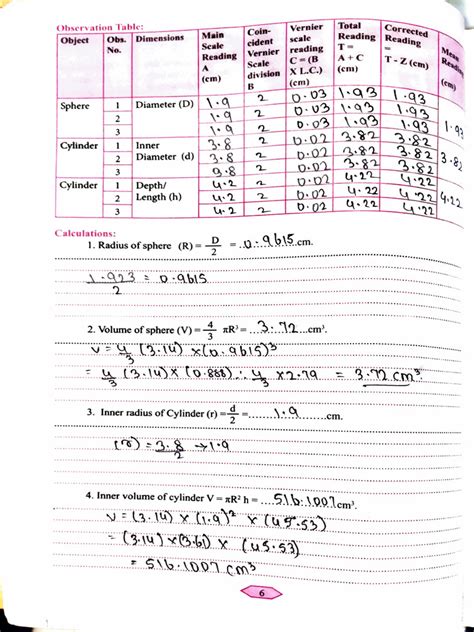 Observation Table:
Object Obs. No. Dimensions Main Scale Reading A (cm) Coin-cident Vernier Scale division B Vernier scale reading C = (B X L.C.) (cm) Total Reading T = A + C (cm) Corrected Reading = T - Z (cm) Mean Reading (cm)
Sphere 1 Diameter (D) 1.9 2 0.03 1.93 1.93
2 1.9 2 0.03 1.93 1.93 1.93
3 1.9 2 0.03 1.93 1.93
Cylinder 1 Inner 3.8 2 0.02 3.82 3.82
2 Diameter (d) 3.8 2 0.02 3.82 3.82 3.82
3 3.8 2 0.02 3.82 3.82
Cylinder 1 Depth/ 4.2 2 0.02 4.22 4.22
2 Length (h) 4.2 2 0.02 4.22 4.22 4.22
3 4.2 2 0.02 4.22 4.22
Calculations:
1. Radius of sphere (R) = D/2 = 0.9615 cm.
1.923/2 = 0.9615
2. Volume of sphere (V) = 4/3 πR³ = 3.72 cm³.
V = 4/3 (3.14) × (0.9615)³
= 4/3 (3.14) × (0.888) ∴ 4/3 × 2.79 = 3.72 cm³.
3. Inner radius of Cylinder (r) = d/2 = 1.9 cm.
(r) = 3.8/2 → 1.9
4. Inner volume of cylinder V = πR² h = 516.1007 cm³.
V = (3.14) × (1.9)² × (45.53)
= (3.14) × (3.61) × (45.53)
= 516.1007 cm³
6